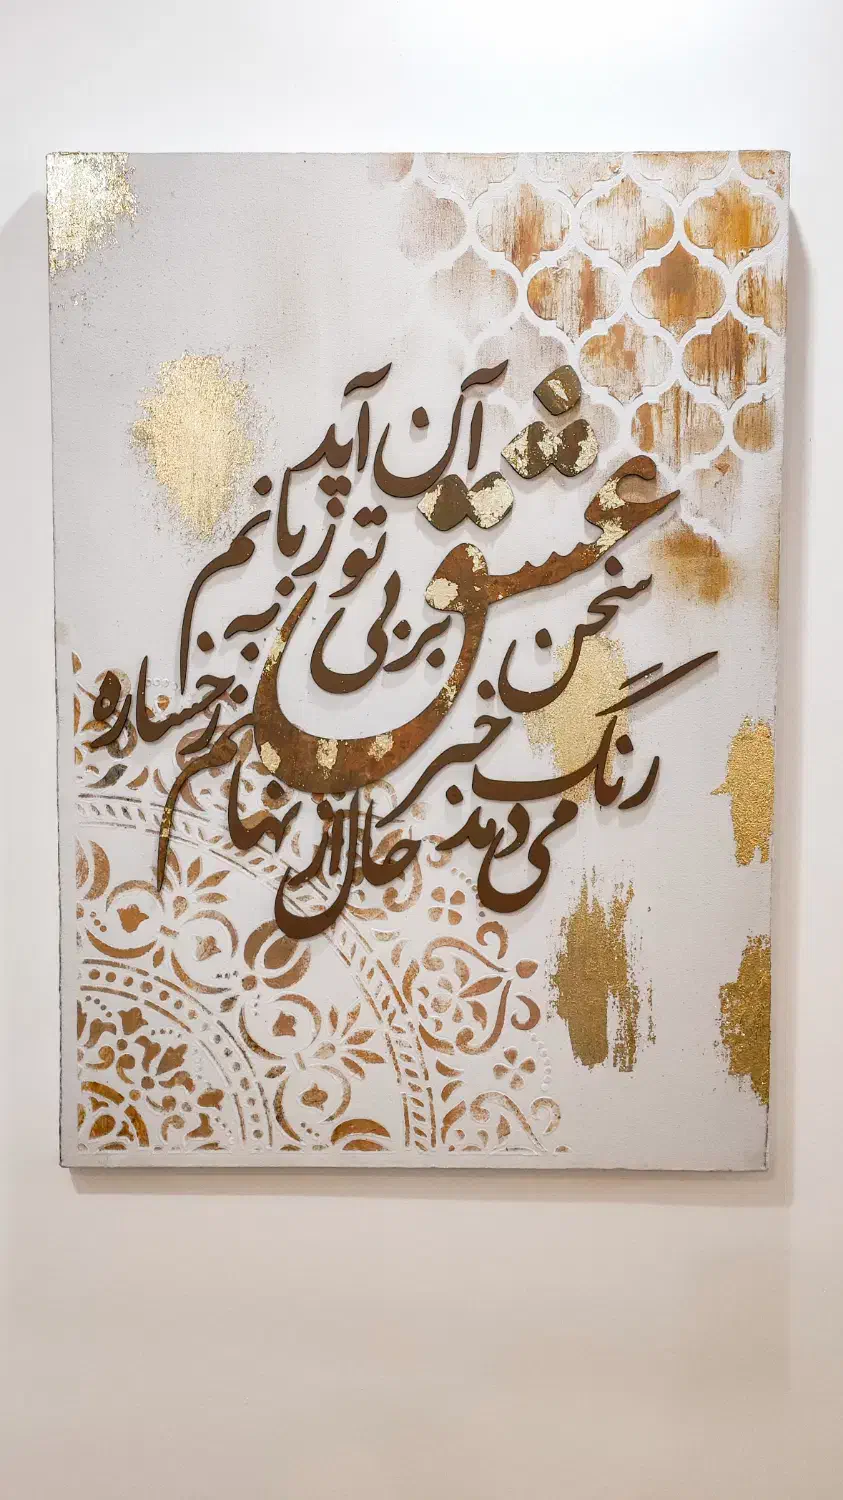 سخن عشق تو بی آن برآید به زبانم
رنگ رخساره خبر می‌دهد از حال نهانم